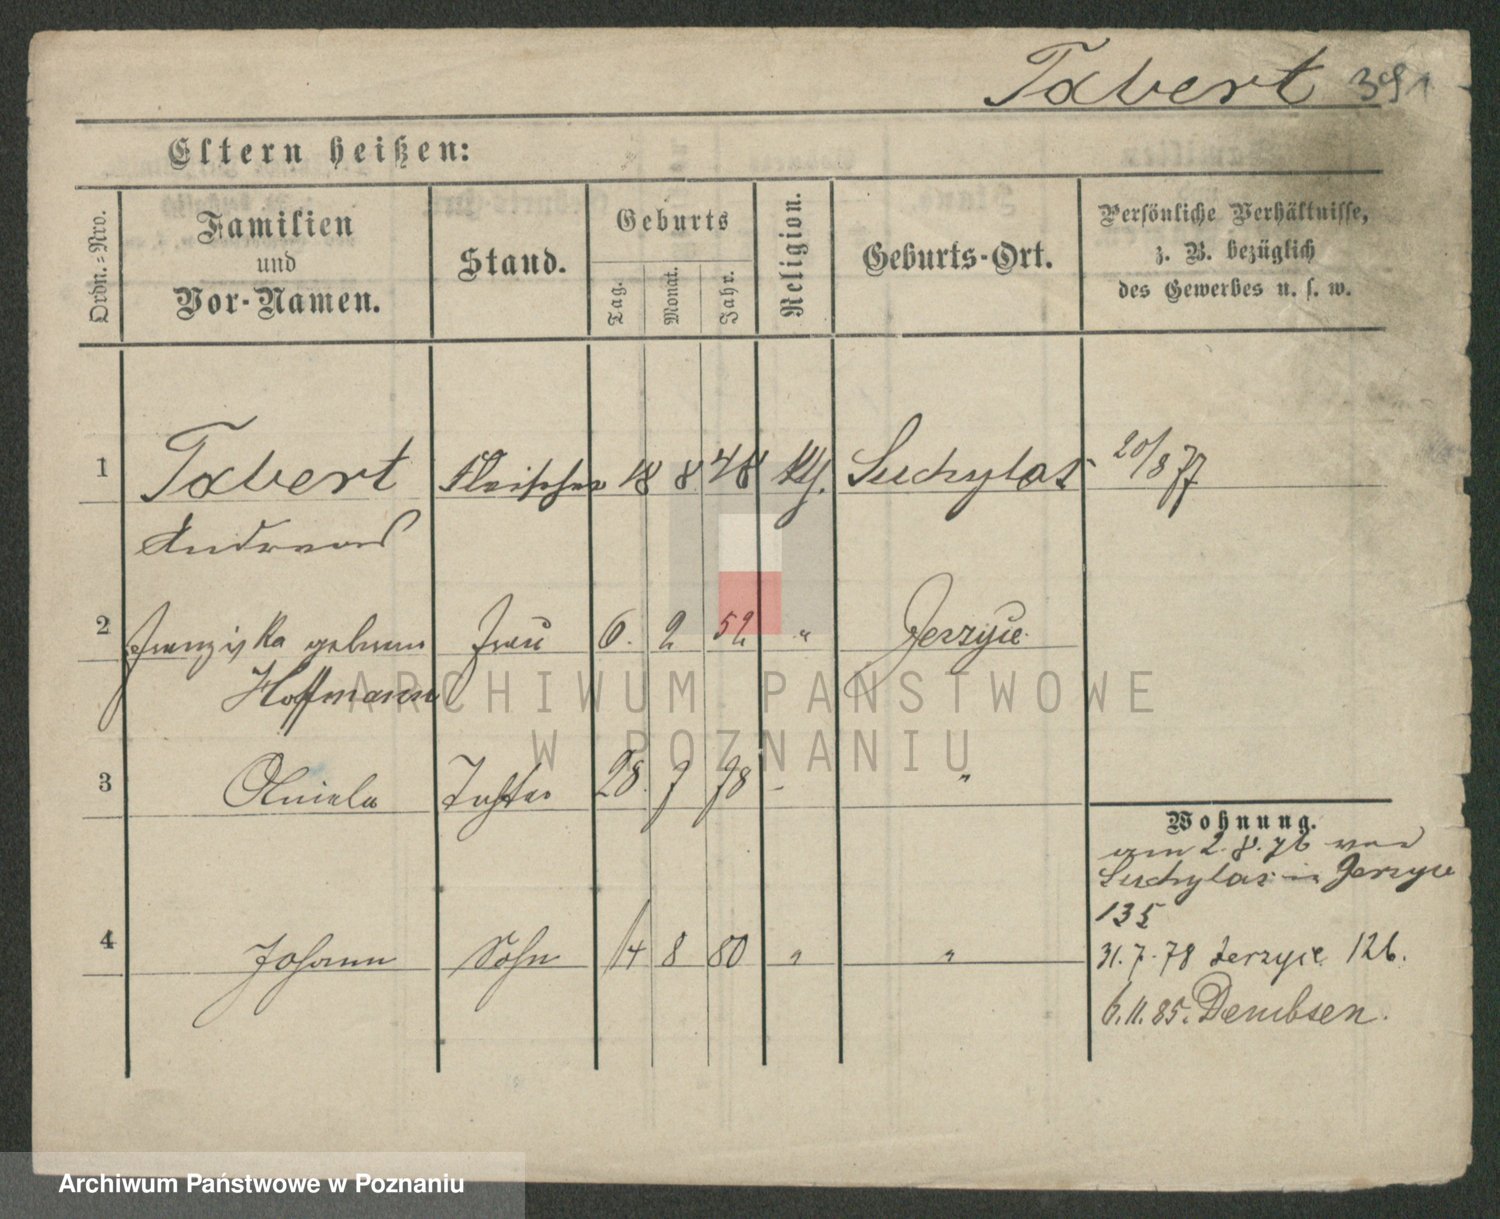 Tabert 391
Eltern heißen:
Ordn.-Nro.
Familien
und
Vor-Namen.
Stand.
Geburts
Tag.
Monat.
Jahr.
Religion.
Geburts-Ort.
Persönliche Verhältnisse,
z. B. bezüglich
des Gewerbes u. s. w.
1 Tabert Fleischer 18 8 48 kth. Suchylas 20/8 77
Andreas
2 Franziska geborene Frau 6. 2 52 " Jerzyce
Hoffmann
3 Tochter 28. 7 78 - "
4 Johann Sohn 14 8 80 " "
Wohnung.
am 2. 8. 76 von
Suchylas in Jerzyce
135
31. 7. 78 Jerzyce 126.
6. 11. 85. Dembsen.
ARCHIWUM PAŃSTWOWE
W POZNANIU
Archiwum Państwowe w Poznaniu